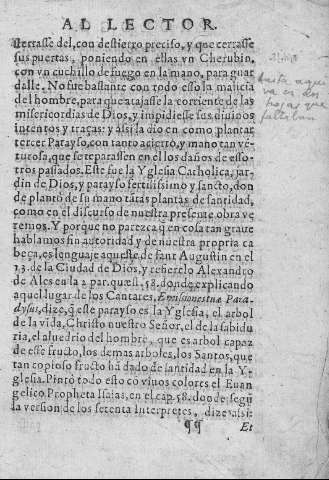 AL LECTOR.
terrasse del, con destierro preciso, y que cerrasse
sus puertas, poniendo en ellas vn Cherubin,
con vn cuchillo de fuego en la mano, para guar
dalle. No fue bastante con todo esso la malicia
del hombre, para que atajasse la corriente de las
misericordias de Dios, y impidiesse sus diuinos
intentos y traças: y assi la dio en como plantar
tercer Parayso, con tanto acierto, y mano tan ve-
turosa, que se reparassen en el los daños de esso-
tros passados. Este fue la Yglesia Catholica, jar-
din de Dios, y parayso fertilissimo y sancto, don
de planto de su mano tãtas plantas de santidad,
como en el discurso de nuestra presente obra ve
remos. Y porque no parezca q̃ en cosa tan graue
hablamos sin autoridad y de nuestra propria ca
beça, es lenguaje aqueste de sant Augustin en el
13. de la Ciudad de Dios, y refierelo Alexandro
de Ales en la 2. par. quæst. 58. donde explicando
aquel lugar de los Cantares, Emissiones tuæ Para
dysus, dize, q̃ este parayso es la Yglesia, el arbol
de la vida, Christo nuestro Señor, el de la sabidu
ria, el aluedrio del hombre, que es arbol capaz
de este fructo, los demas arboles, los Santos, que
tan copioso fructo hã dado de santidad en la Y-
glesia. Pintò todo esto cõ viuos colores el Euan
gelico Propheta Isaias, en el cap. 58. donde segũ
la version de los setenta Interpretes, dize assi:
¶¶ Et
hasta aqui
va en dos
hojas que
faltaban